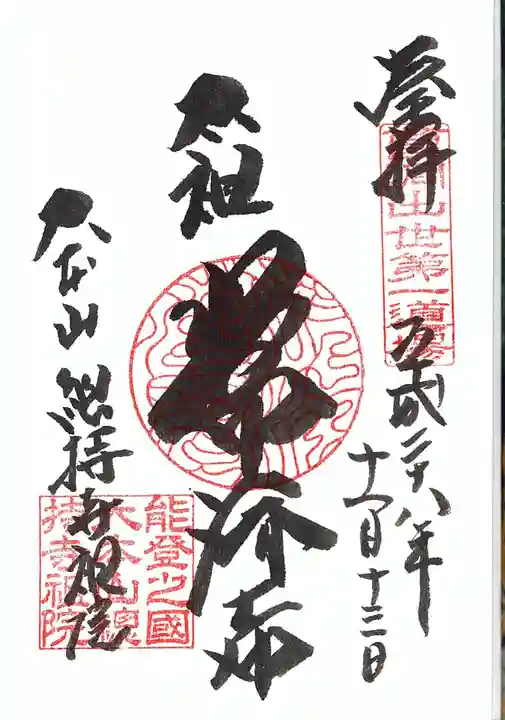 登拝
曹洞出世第一道場
平成二十八年
十一月十三日
太祖
常済大師
大本山總持寺祖院
能登之國
大本山總
持寺祖院